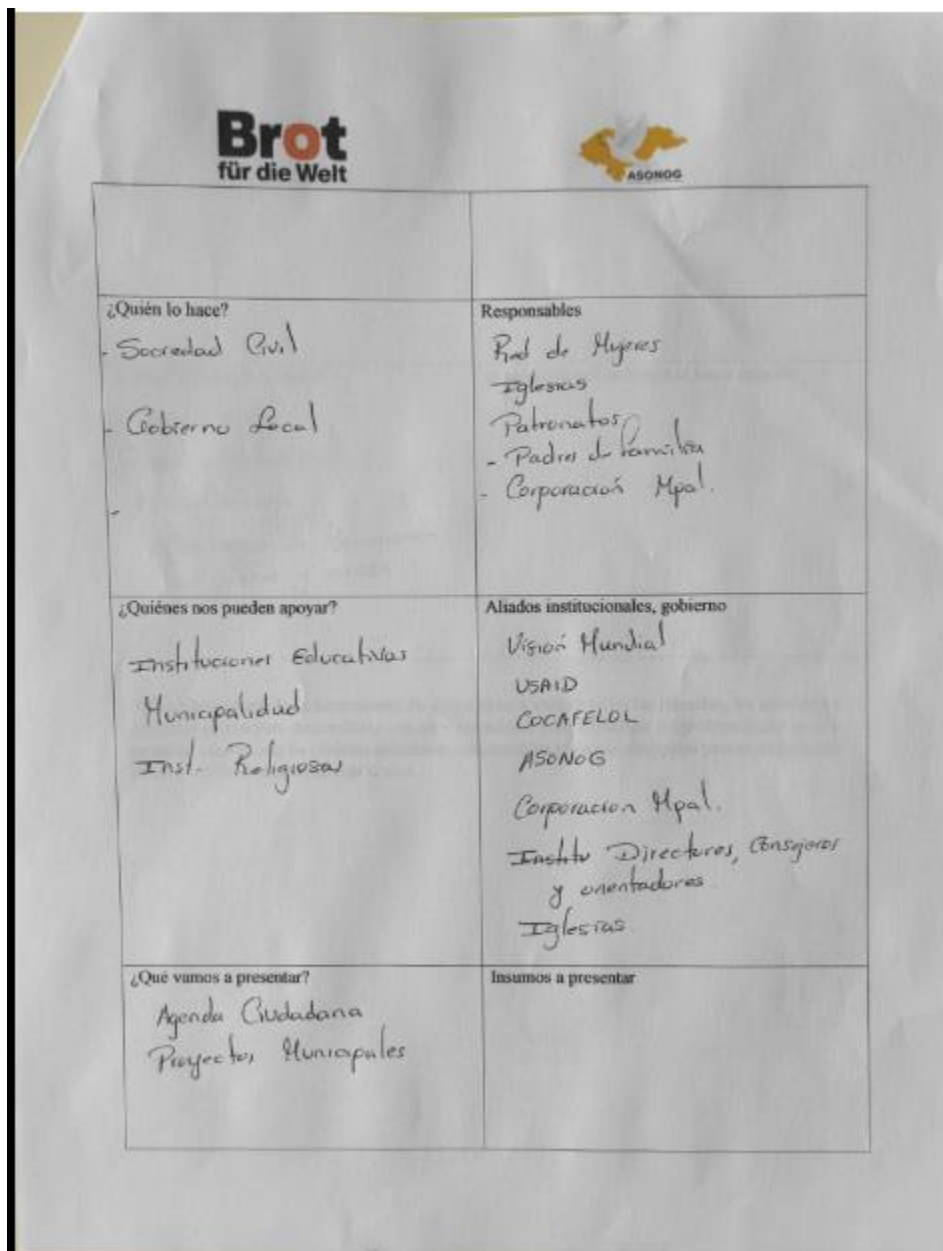 Brot
für die Welt
ASONOG
¿Quién lo hace?
- Sociedad Civil
- Gobierno Local
-
Responsables
Red de Mujeres
Iglesias
Patronatos
- Padres de familia
- Corporación Mpal.
¿Quiénes nos pueden apoyar?
Instituciones Educativas
Municipalidad
Inst. Religiosas
Aliados institucionales, gobierno
Visión Mundial
USAID
COCAFELOL
ASONOG
Corporacion Mpal.
Institu Directores, Consejeros
y orientadores
Iglesias
¿Qué vamos a presentar?
Agenda Ciudadana
Proyectos Municipales
Insumos a presentar